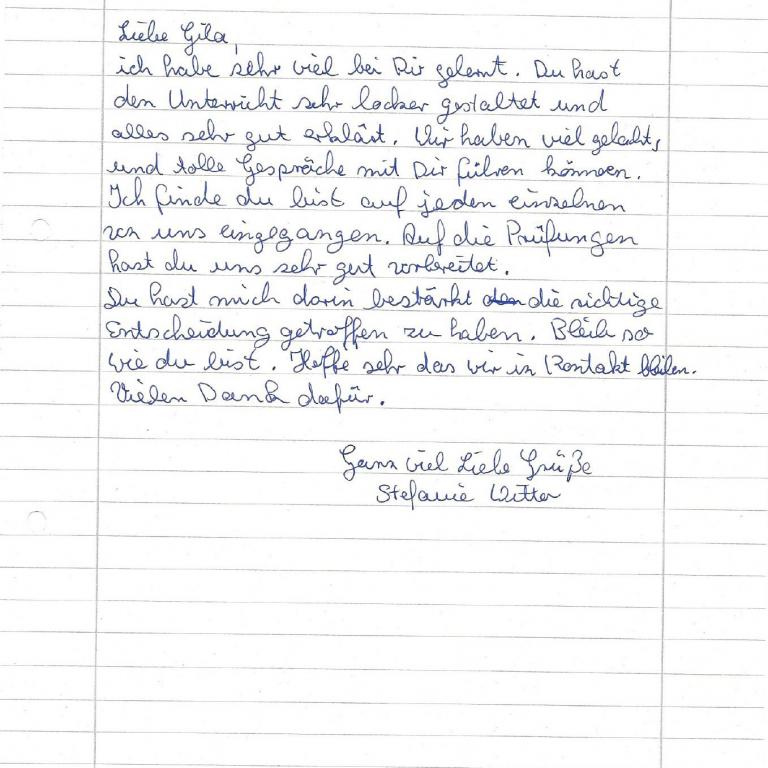 Liebe Gila,
ich habe sehr viel bei Dir gelernt. Du hast
den Unterricht sehr locker gestaltet und
alles sehr gut erklärt. Wir haben viel gelacht,
und tolle Gespräche mit Dir führen können.
Ich finde du bist auf jeden einzelnen
von uns eingegangen. Auf die Prüfungen
hast du uns sehr gut vorbereitet.
Du hast mich darin bestärkt die richtige
Entscheidung getroffen zu haben. Bleib so
wie du bist. Hoffe sehr das wir in Kontakt bleiben.
Vielen Dank dafür.
Ganz viel Liebe Grüße
Stefanie